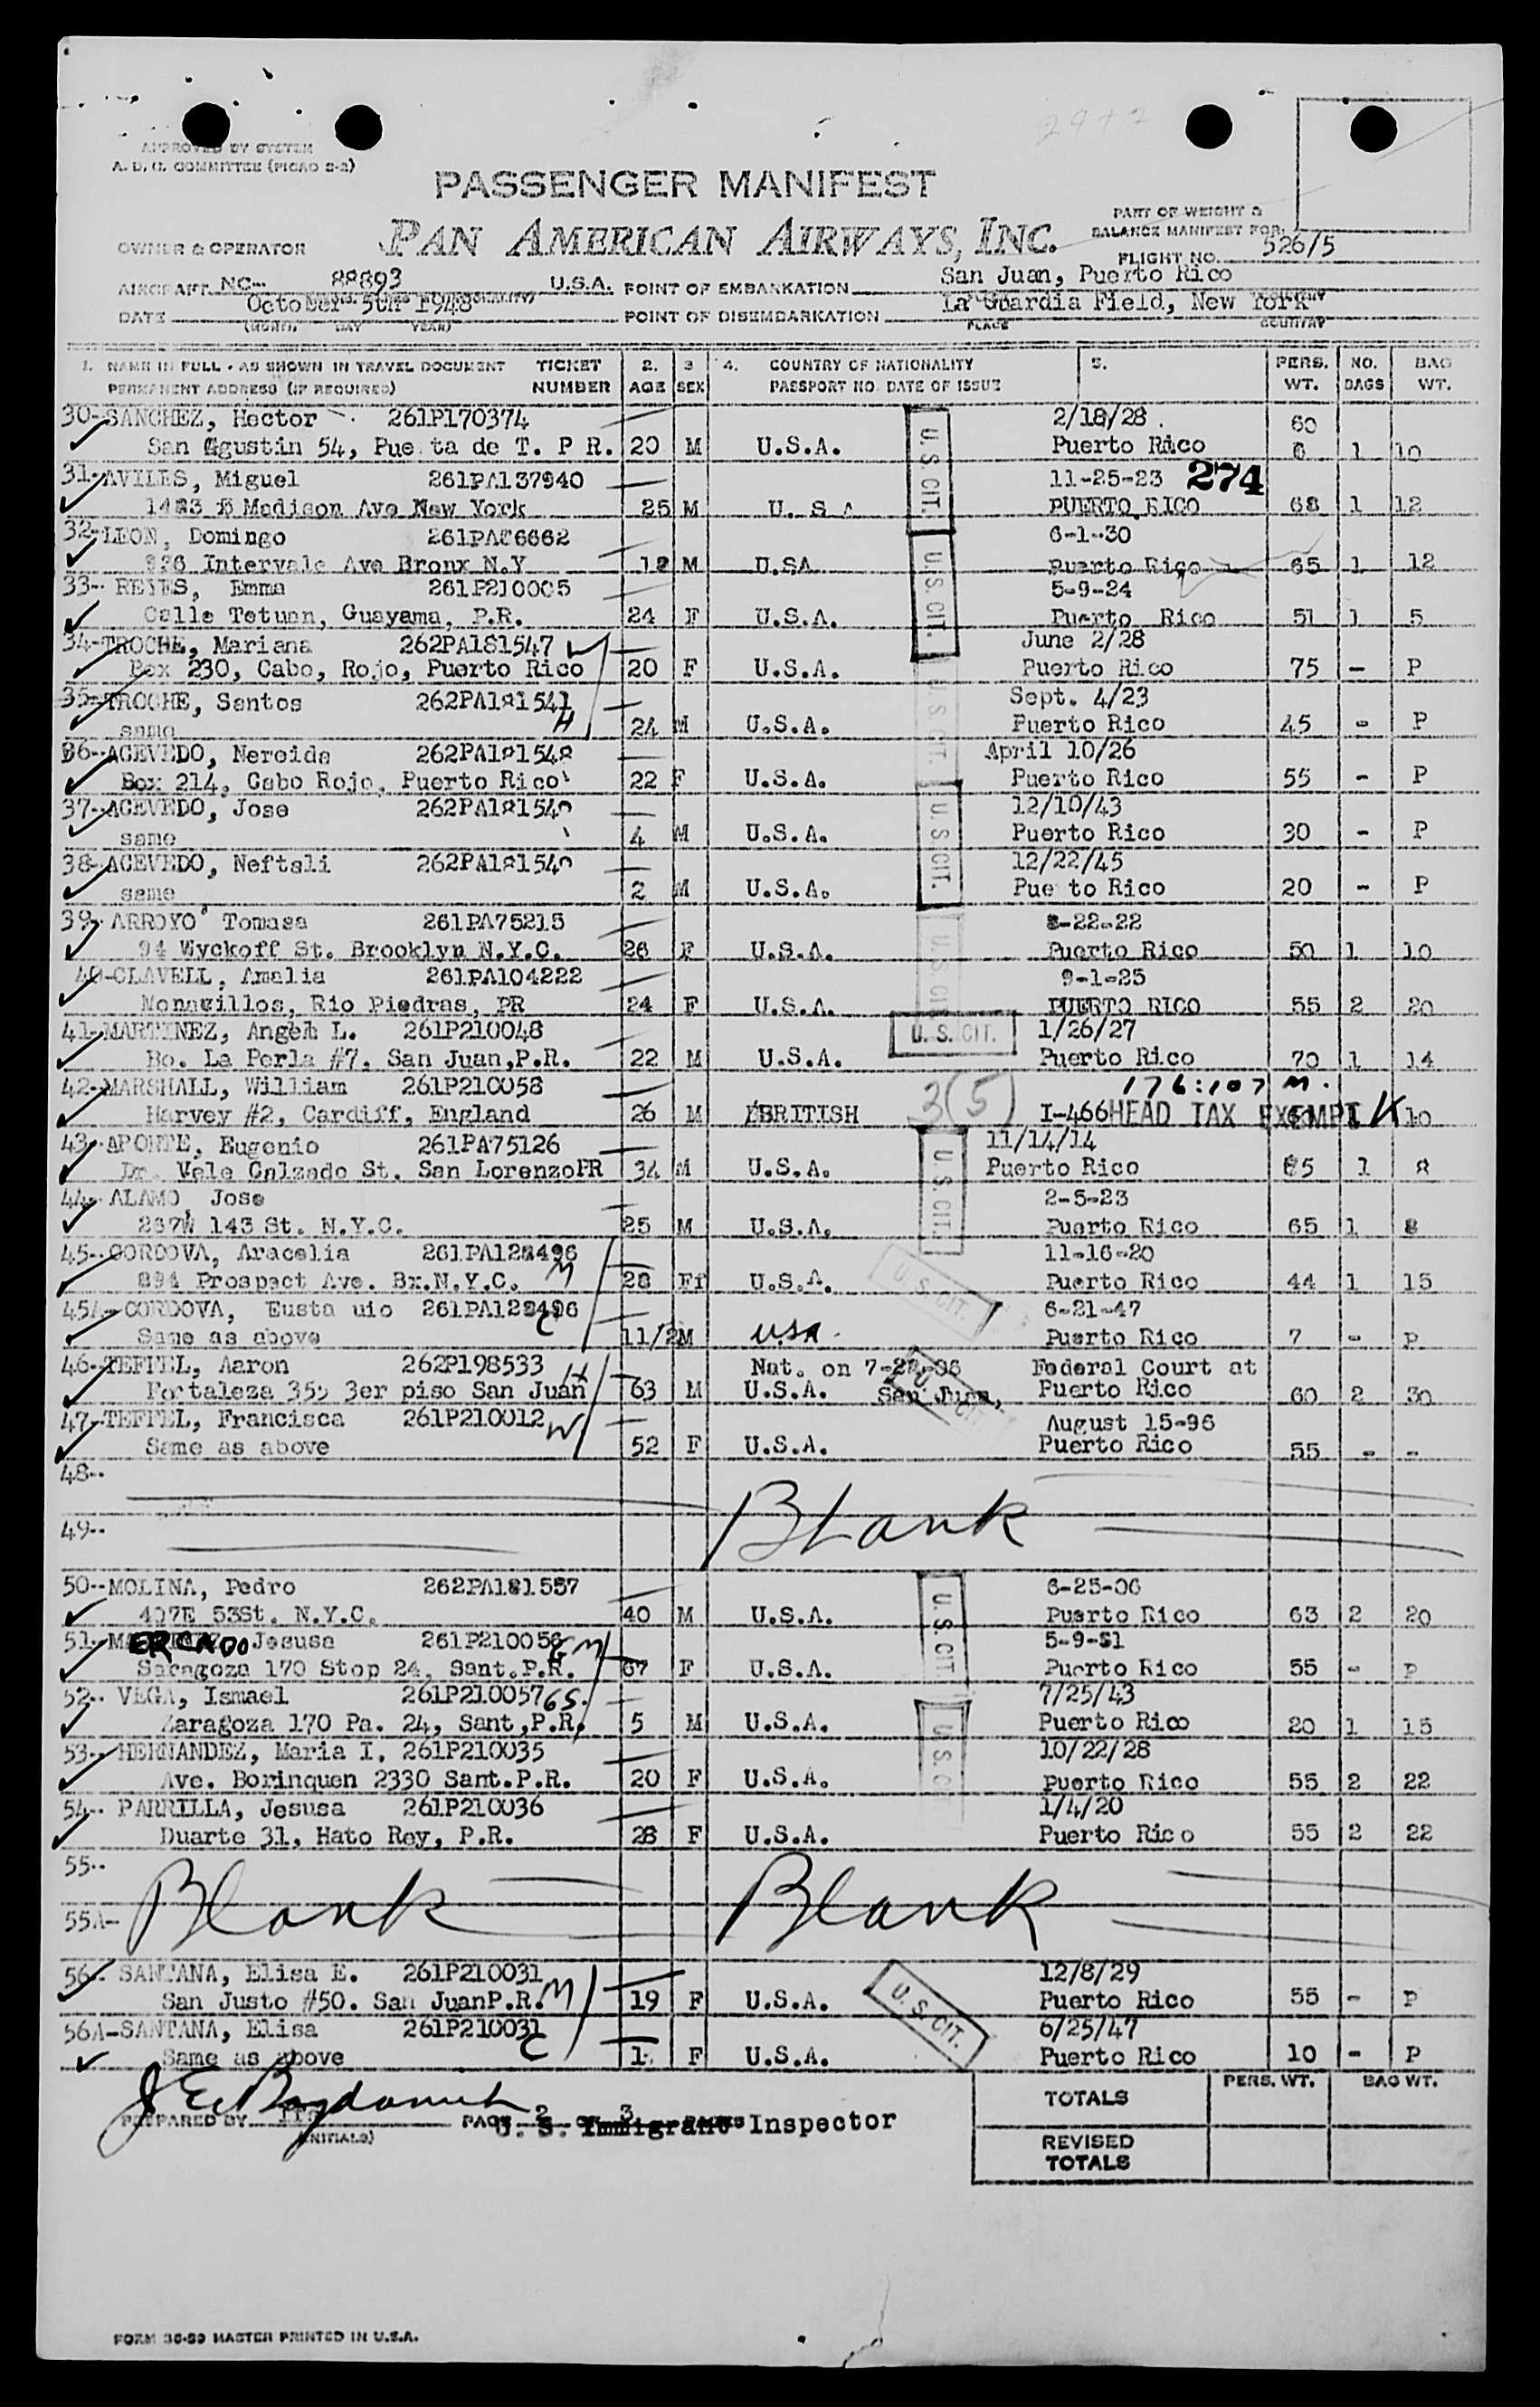 29+2
APPROVED BY SYSTEM
A. D. C. COMMITTEE (PICAO 2-2)
PASSENGER MANIFEST
PART OF WEIGHT &
BALANCE MANIFEST FOR:
OWNER & OPERATOR PAN AMERICAN AIRWAYS, INC. FLIGHT NO. 526/5
AIRCRAFT NC-- 88893 U.S.A. POINT OF EMBARKATION San Juan, Puerto Rico
DATE October 5th 1948 POINT OF DISEMBARKATION La Guardia Field, New York
(MONTH, DAY YEAR) PLACE COUNTRY
1. NAME IN FULL - AS SHOWN IN TRAVEL DOCUMENT TICKET 2. 3 4. COUNTRY OF NATIONALITY 5. PERS. NO. BAG
PERMANENT ADDRESS (IF REQUIRED) NUMBER AGE SEX PASSPORT NO. DATE OF ISSUE WT. BAGS WT.
30-SANCHEZ, Hector 261P170374 2/18/28 60
San Agustin 54, Pue ta de T. P R. 20 M U.S.A. U.S. CIT. Puerto Rico 6 1 10
31-AVILES, Miguel 261PA137940 11-25-23 274
Madison Ave New York 25 M U. S A PUERTO RICO 68 1 12
32-LEON, Domingo 261PA86662 6-1-30
Intervale Ave Bronx N.Y 18 M U.SA U.S. CIT. Puerto Rico 65 1 12
33-- REYES, Emma 261P210005 5-9-24
Calle Tetuan, Guayama, P.R. 24 F U.S.A. Puerto Rico 51 1 5
34-TROCHE, Mariana 262PA181547 W June 2/28
Box 230, Cabo, Rojo, Puerto Rico 20 F U.S.A. Puerto Rico 75 - P
35-TROCHE, Santos 262PA181541 H Sept. 4/23
same 24 M U.S.A. U.S. CIT. Puerto Rico 45 - P
36--ACEVEDO, Nereida 262PA181548 April 10/26
Box 214, Cabo Rojo, Puerto Rico 22 F U.S.A. Puerto Rico 55 - P
37-ACEVEDO, Jose 262PA181549 12/10/43
same 4 M U.S.A. U.S. CIT. Puerto Rico 30 - P
38-ACEVEDO, Neftali 262PA181549 12/22/45
same 2 M U.S.A. Pue to Rico 20 - P
39- ARROYO Tomasa 261PA75215 8-22-22
94 Wyckoff St. Brooklyn N.Y.C. 26 F U.S.A. U.S. CIT. Puerto Rico 50 1 10
40-CLAVELL, Amalia 261PA104222 9-1-25
Monacillos, Rio Piedras, PR 24 F U.S.A. PUERTO RICO 55 2 20
41-MARTINEZ, Angel L. 261P210048 U. S. CIT. 1/26/27
Bo. La Perla #7, San Juan,P.R. 22 M U.S.A. Puerto Rico 70 1 14
42-MARSHALL, William 261P210058 3(5) 176:107 M.
Harvey #2, Cardiff, England 26 M BRITISH I-466 HEAD TAX EXEMPT K 10
43- APONTE, Eugenio 261PA75126 11/14/14
Calzado St. San LorenzoPR 34 M U.S.A. U.S. CIT. Puerto Rico 65 1 8
44- ALAMO, Jose 2-5-23
237W 143 St. N.Y.C. 25 M U.S.A. Puerto Rico 65 1 8
45--CORDOVA, Aracelia 261PA128496 M 11-16-20
894 Prospect Ave. Bx.N.Y.C. 28 Ff U.S.A. U.S. CIT. Puerto Rico 44 1 15
45A-CORDOVA, Eusta uio 261PA128496 C 6-21-47
Same as above 11/2M USA. Puerto Rico 7 - P
46-TEFFEL, Aaron 262P198533 H Nat. on 7-28-06 Federal Court at
Fortaleza 355 3er piso San Juan 63 M U.S.A. San Juan, Puerto Rico 60 2 30
47-TEFFEL, Francisca 261P210012 W August 15-96
Same as above 52 F U.S.A. Puerto Rico 55 - -
48--
Blank
49--
50--MOLINA, Pedro 262PA181557 6-25-06
407E 53St. N.Y.C. 40 M U.S.A. U.S. CIT. Puerto Rico 63 2 20
51-MERCADO Jesusa 261P210056 GM 5-9-81
Saragoza 170 Stop 24, Sant.P.R. 67 F U.S.A. Puerto Rico 55 - P
52-- VEGA, Ismael 261P210057 GS. 7/25/43
Zaragoza 170 Pa. 24, Sant,P.R. 5 M U.S.A. U.S. CIT. Puerto Rico 20 1 15
53-- HERNANDEZ, Maria I. 261P210035 10/22/28
Ave. Borinquen 2330 Sant.P.R. 20 F U.S.A. Puerto Rico 55 2 22
54-- PARRILLA, Jesusa 261P210036 1/4/20
Duarte 31, Hato Rey, P.R. 28 F U.S.A. Puerto Rico 55 2 22
55--
Blank Blank
55A-
56- SANTANA, Elisa E. 261P210031 M 12/8/29
San Justo #50. San JuanP.R. 19 F U.S.A. U.S. CIT. Puerto Rico 55 - P
56A-SANTANA, Elisa 261P210031 C 6/25/47
Same as above 1 F U.S.A. Puerto Rico 10 - P
PERS. WT. BAG WT.
TOTALS
PREPARED BY (INITIALS) PAGE 2 OF 3 PAGES
U. S. Immigrant Inspector
REVISED
TOTALS
FORM 36-89 MASTER PRINTED IN U.S.A.